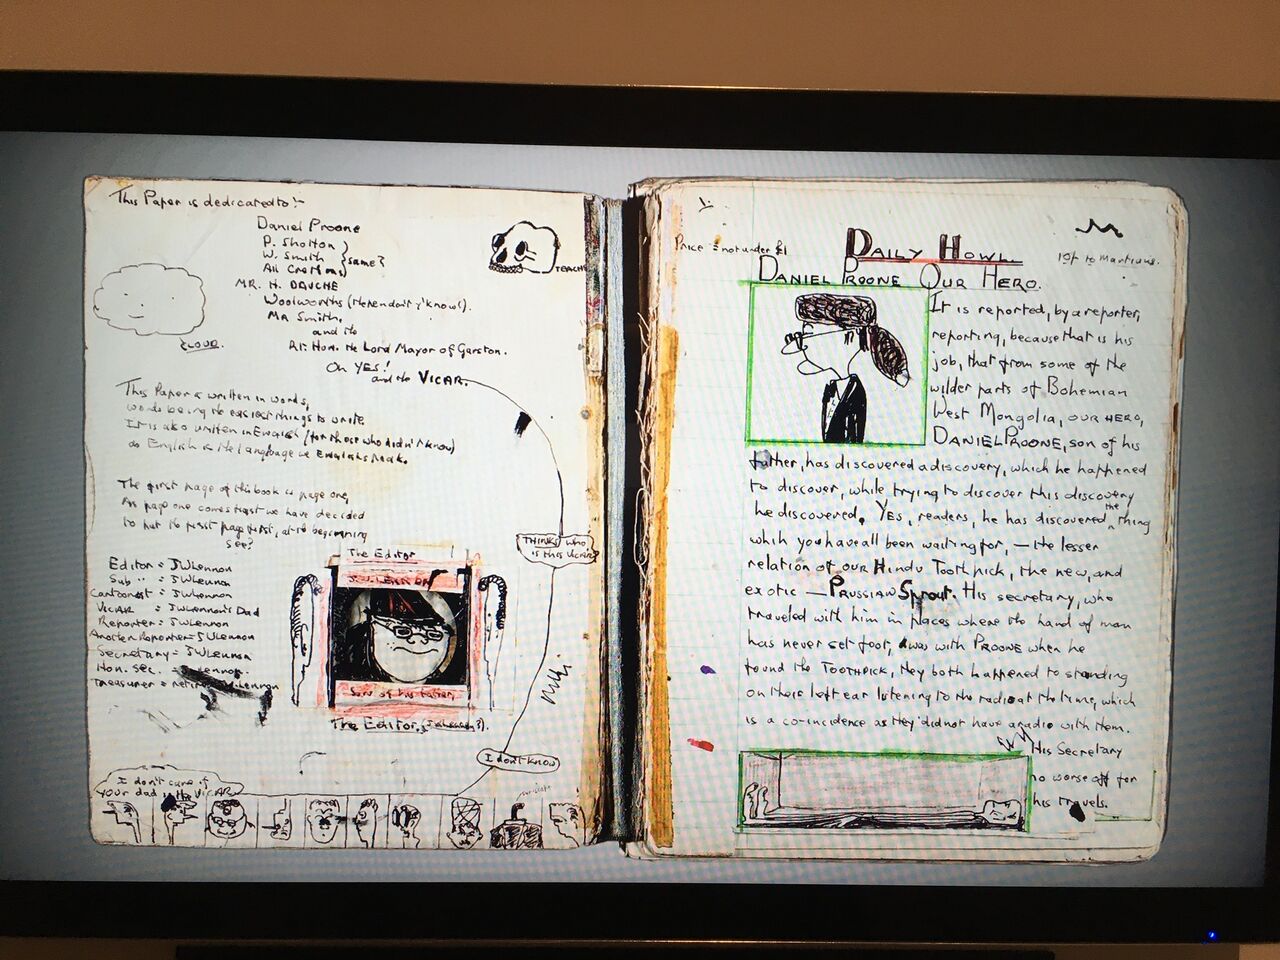 This Paper is dedicated to :-
Daniel Proone
P. Shotton
W. Smith
All Cretins
same?
MR. H. DAUCHE
Woolworths (Herendon't y'know!).
Mr Smith.
and to
Rt. Hon. the Lord Mayor of Garston.
Oh YES!
and the VICAR.
TEACH
CLOUD.
This Paper is written in words,
words being the easiest things to write
It is also written in English (for those who didn't know)
as English is the language we English speak.
The first page of this book is page one,
As page one comes first we have decided
to put the first page first, at the beginning
see?
THINKS who
is this VICAR?
Editor = JWLennon
Sub " = JWLennon
Cartoonist = JWLennon
VICAR = JWLennon's Dad
Reporter = JWLennon
Another Reporter = JWLennon
Secretary = JWLennon
Hon. Sec. = Lennon.
Treasurer = Lennon
The Editor
J.W. LENNON
Son of his father,
The Editor, (J.W.Lennon?).
I don't know
I don't care if
YOUR dad is the VICAR
Price = not under £1
DAILY HOWL
10/- to Martians.
DANIEL PROONE OUR HERO.
It is reported, by a reporter,
reporting, because that is his
job, that from some of the
wilder parts of Bohemian
West Mongolia, OUR HERO,
DANIEL PROONE, son of his
father, has discovered a discovery, which he happened
to discover, while trying to discover this discovery
he discovered. YES, readers, he has discovered the thing
which you have all been waiting for, — the lesser
relation of OUR Hindu Toothpick, the new, and
exotic — PRUSSIAN Sprout. His secretary, who
traveled with him in places where the hand of man
has never set foot, was with PROONE when he
found the TOOTHPICK, they both happened to standing
on their left ear listening to the radio at the time, which
is a co-incidence as they didnot have a radio with them.
His Secretary
no worse off for
his travels.